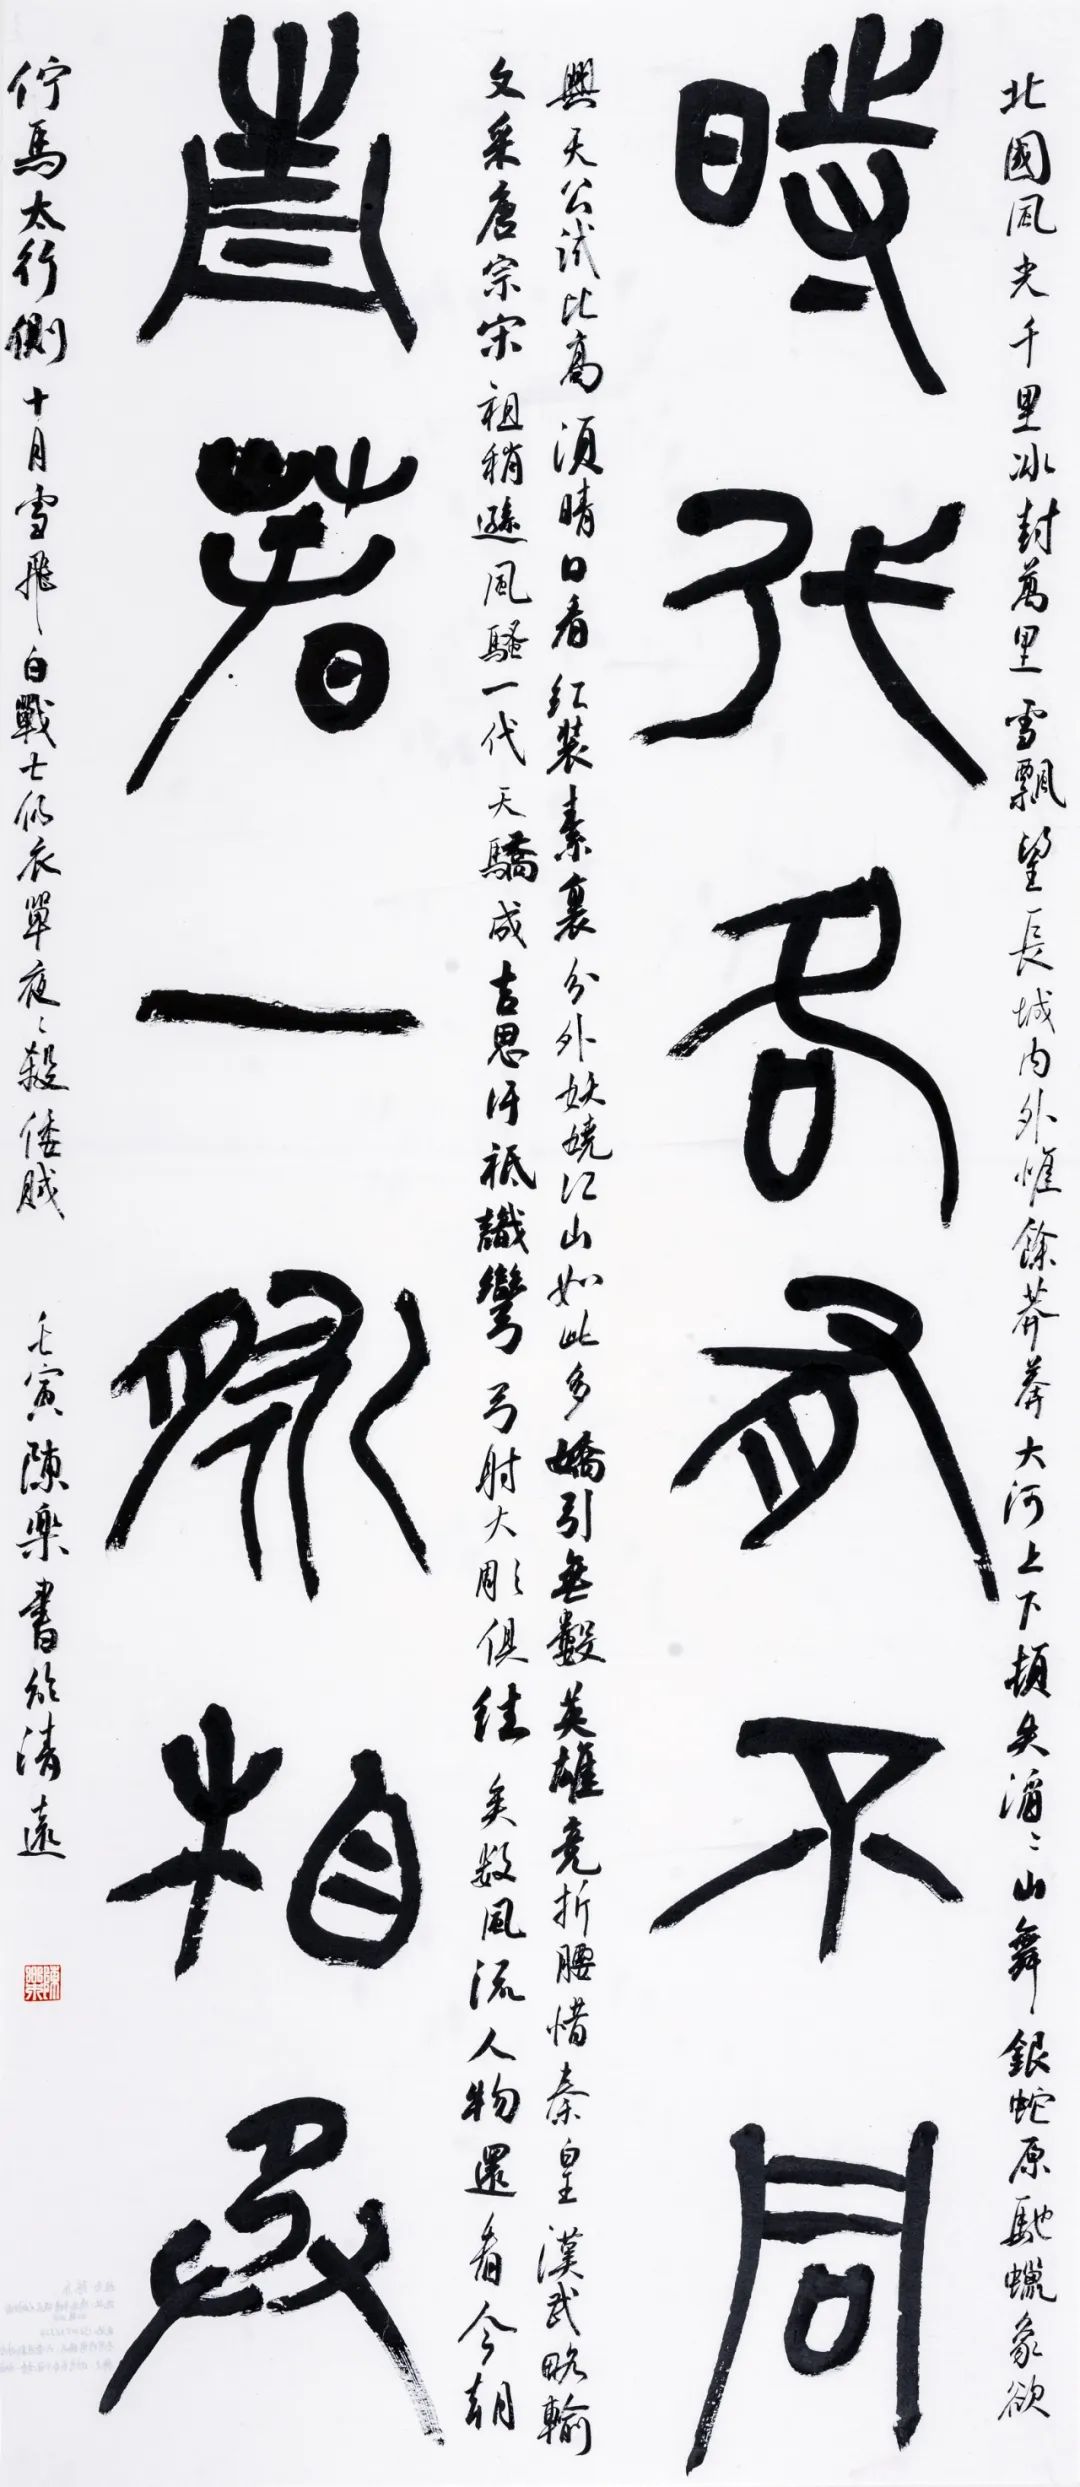 北國風光千里冰封萬里雪飄望長城内外惟餘莽莽大河上下頓失滔〻山舞銀蛇原馳蠟象欲
時代各有不同
與天公試比高須晴日看紅裝素裹分外妖嬈江山如此多嬌引無數英雄競折腰惜秦皇漢武略輸
文采唐宗宋祖稍遜風騷一代天驕成吉思汗祗識彎弓射大彫俱往矣數風流人物還看今朝
青春一脈相承
佇馬太行側十月雪飛白戰士仍衣單夜〻殺倭賊 壬寅陳樂書於清遠
陳樂